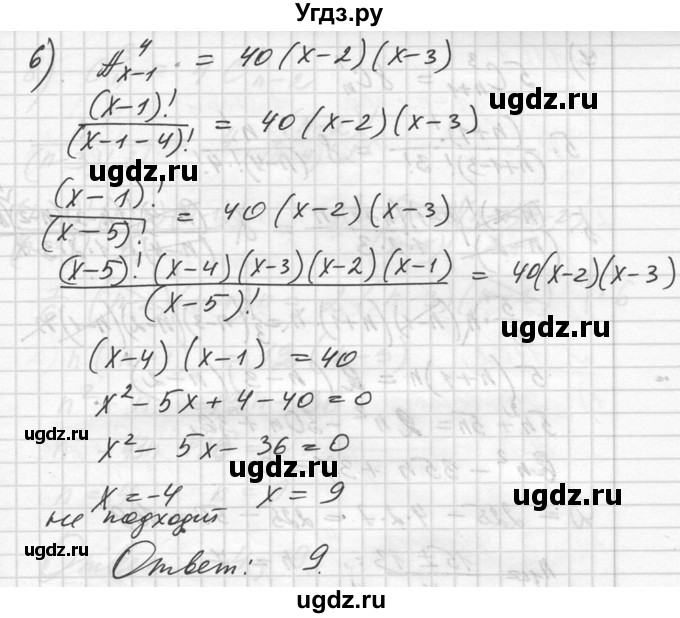 Угдз.ру
6) A⁴ₓ₋₁ = 40(x-2)(x-3)
ugdz.ru
(x-1)! / (x-1-4)! = 40(x-2)(x-3)
ugdz.ru
(x-1)! / (x-5)! = 40(x-2)(x-3)
(x-5)!(x-4)(x-3)(x-2)(x-1) / (x-5)! = 40(x-2)(x-3)
ugdz.ru
(x-4)(x-1) = 40
x² - 5x + 4 - 40 = 0
ugdz.ru
x² - 5x - 36 = 0
ugdz.ru
x = -4 x = 9
ugdz.ru
не подходит
ugdz.ru
Ответ: 9.
ugdz.ru
ugdz.ru